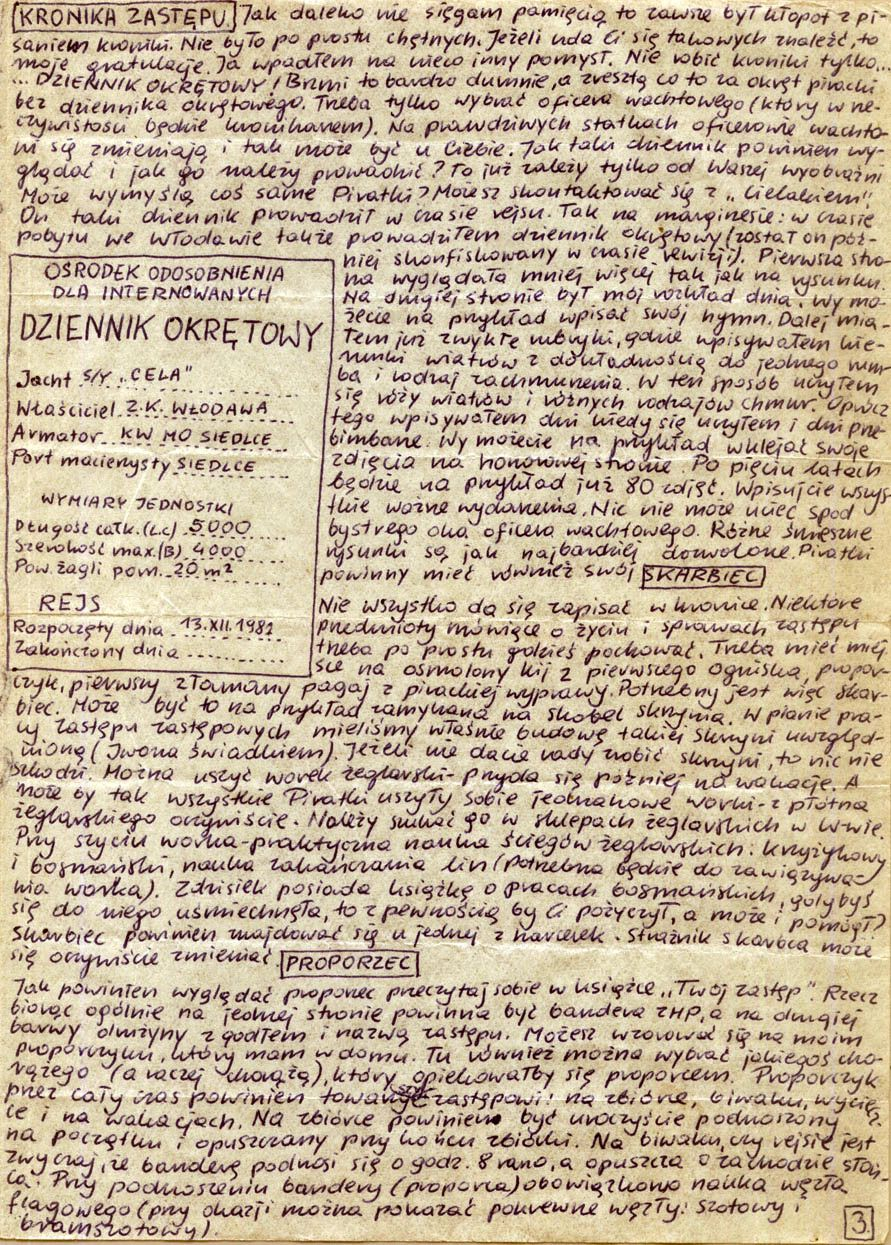 KRONIKA ZASTĘPU Jak daleko nie sięgam pamięcią to zawsze był kłopot z pi-
saniem kroniki. Nie było po prostu chętnych. Jeżeli uda Ci się takowych znaleźć, to
moje gratulacje. Ja wpadłem na nieco inny pomysł. Nie robić kroniki tylko...
... DZIENNIK OKRĘTOWY! Brzmi to bardzo dumnie, a zresztą co to za okręt piracki
bez dziennika okrętowego. Trzeba tylko wybrać oficera wachtowego (który w rze-
czywistości będzie kronikarzem). Na prawdziwych statkach oficerowie wachto-
wi się zmieniają i tak może być u Ciebie. Jak taki dziennik powinien wy-
glądać i jak go należy prowadzić? To już zależy tylko od Waszej wyobraźni
Może wymyślą coś same Piratki? Możesz skontaktować się z "Cielakiem".
On taki dziennik prowadził w czasie rejsu. Tak na marginesie: w czasie
pobytu we Włodawie także prowadziłem dziennik okrętowy (został on póź-
niej skonfiskowany w czasie rewizji). Pierwsza stro-
na wyglądała mniej więcej tak jak na rysunku.
Na drugiej stronie był mój rozkład dnia. Wy mo-
żecie na przykład wpisać swój hymn. Dalej mia-
łem już zwykłe rubryki, gdzie wpisywałem kie-
runki wiatrów z dokładnością do jednego rum-
ba i rodzaj zachmurzenia. W ten sposób uczyłem
się róży wiatrów i różnych rodzajów chmur. Oprócz
tego wpisywałem dni kiedy się uczyłem i dni prze-
bimbane. Wy możecie na przykład wklejać swoje
zdjęcia na honorowej stronie. Po pięciu latach
będzie na przykład już 80 zdjęć. Wpisujcie wszys-
tkie ważne wydarzenia. Nic nie może uciec spod
bystrego oka oficera wachtowego. Różne śmieszne
rysunki są jak najbardziej dozwolone. Piratki
powinny mieć również swój SKARBIEC
OŚRODEK ODOSOBNIENIA
DLA INTERNOWANYCH
DZIENNIK OKRĘTOWY
Jacht S/Y "CELA"
Właściciel Z.K. WŁODAWA
Armator KW MO SIEDLCE
Port macierzysty SIEDLCE
WYMIARY JEDNOSTKI
Długość całk. (Lc) 5000
Szerokość max. (B) 4000
Pow. żagli pom. 20 m²
REJS
Rozpoczęty dnia 13.XII.1981
Zakończony dnia ..........
Nie wszystko da się zapisać w kronice. Niektóre
przedmioty mówiące o życiu i sprawach zastępu
trzeba po prostu gdzieś pochować. Trzeba mieć miej
sce na osmolony kij z pierwszego ogniska, propor-
czyk, pierwszy złamany pagaj z pirackiej wyprawy. Potrzebny jest więc skar-
biec. Może być to na przykład zamykana na skobel skrzynia. W planie pra-
cy zastępu zastępowych mieliśmy właśnie budowę takiej skrzyni uwzględ-
nioną (Iwona świadkiem). Jeżeli nie dacie rady zrobić skrzyni, to nic nie
szkodzi. Można uszyć worek żeglarski - przyda się później na wakacje. A
może by tak wszystkie Piratki uszyły sobie jednakowe worki - z płótna
żeglarskiego oczywiście. Należy szukać go w sklepach żeglarskich w W-wie.
Przy szyciu worka - praktyczna nauka ściegów żeglarskich: krzyżykowy
i bosmański, nauka zakańczania lin (potrzebna będzie do zawiązywa-
nia worka). Zdzisiek posiada książkę o pracach bosmańskich, gdybyś
się do niego uśmiechnęła, to z pewnością by Ci pożyczył, a może i pomógł?
Skarbiec powinien znajdować się u jednej z harcerek. Strażnik skarbca może
się oczywiście zmieniać. PROPORZEC
Jak powinien wyglądać proporzec przeczytaj sobie w książce "Twój zastęp". Rzecz
biorąc ogólnie na jednej stronie powinna być bandera ZHP, a na drugiej
barwy drużyny z godłem i nazwą zastępu. Możesz wzorować się na moim
proporczyku, który mam w domu. Tu również można wybrać jakiegoś cho-
rążego (a raczej chorążą), który opiekowałby się proporcem. Proporczyk
przez cały czas powinien towarzyszyć zastępowi: na zbiórce, biwaku, wyciecz-
ce i na wakacjach. Na zbiórce powinien być uroczyście podnoszony
na początku i opuszczany przy końcu zbiórki. Na biwaku, czy rejsie jest
zwyczaj, że banderę podnosi się o godz. 8 rano, a opuszcza o zachodzie słoń-
ca. Przy podnoszeniu bandery (proporca) obowiązkowo nauka węzła
flagowego (przy okazji można pokazać pokrewne węzły: szotowy i
bramszotowy).
3